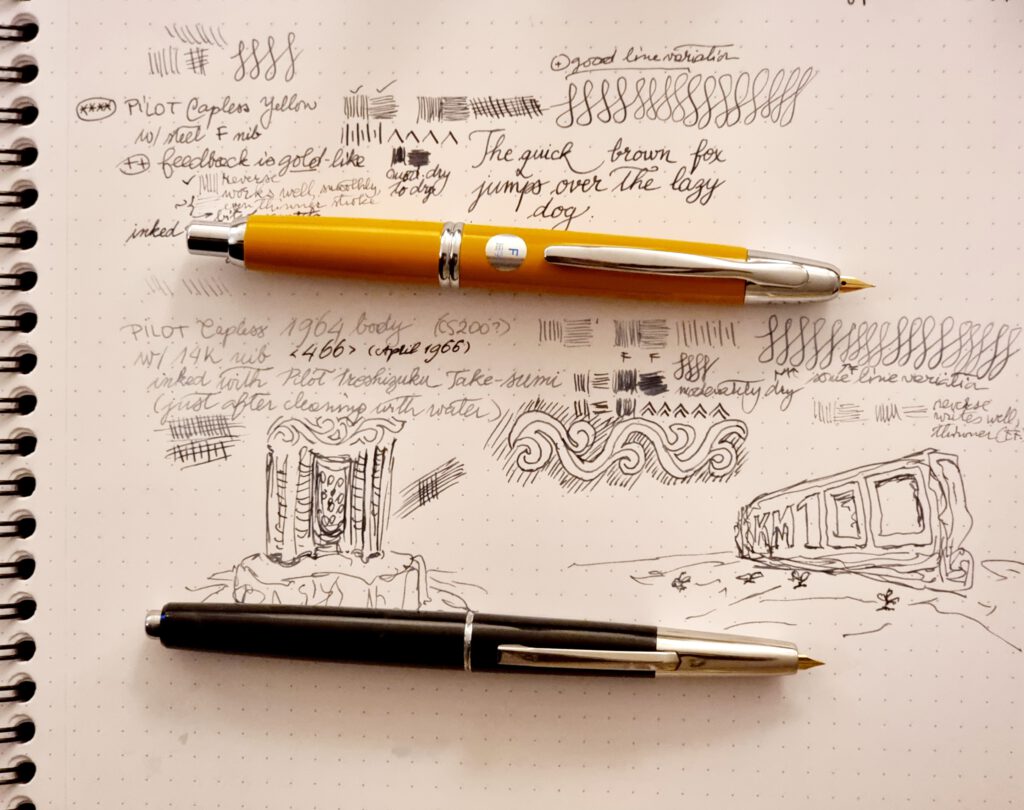 ⊕ good line variation
PILOT Capless Yellow
w/ steel F nib
++ feedback is gold-like
quot dry
to dry
reverse
works well, smoothly,
even thinner stroke
The quick brown fox
jumps over the lazy
dog.
inked
F
PILOT Capless 1964 body (CS200?)
w/ 14K nib <466> (April 1966)
F F
inked with Pilot Iroshizuku Take-sumi
moderately dry
some line variation
(just after cleaning with water)
reverse
writes well,
thinner (EF
KM1